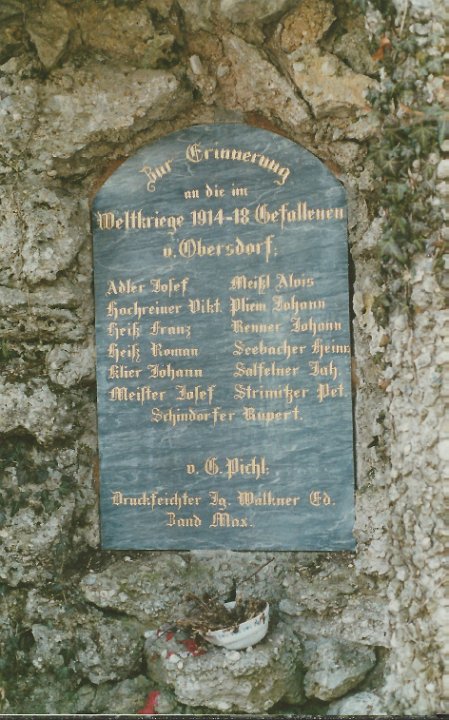 Zur Erinnerung
an die im
Weltkriege 1914-18 Gefallenen
v. Obersdorf;
Adler Josef Meißl Alois
Hochreiner Vikt. Plem Johann
Heiß Franz Renner Johann
Heiß Roman Seebacher Heinr.
Klier Johann Salfelner Joh.
Meister Josef Strimitzer Pet.
Schindorfer Rupert.
v. G. Pichl;
Druckfeichter Ig. Walkner Ed.
Zand Max.